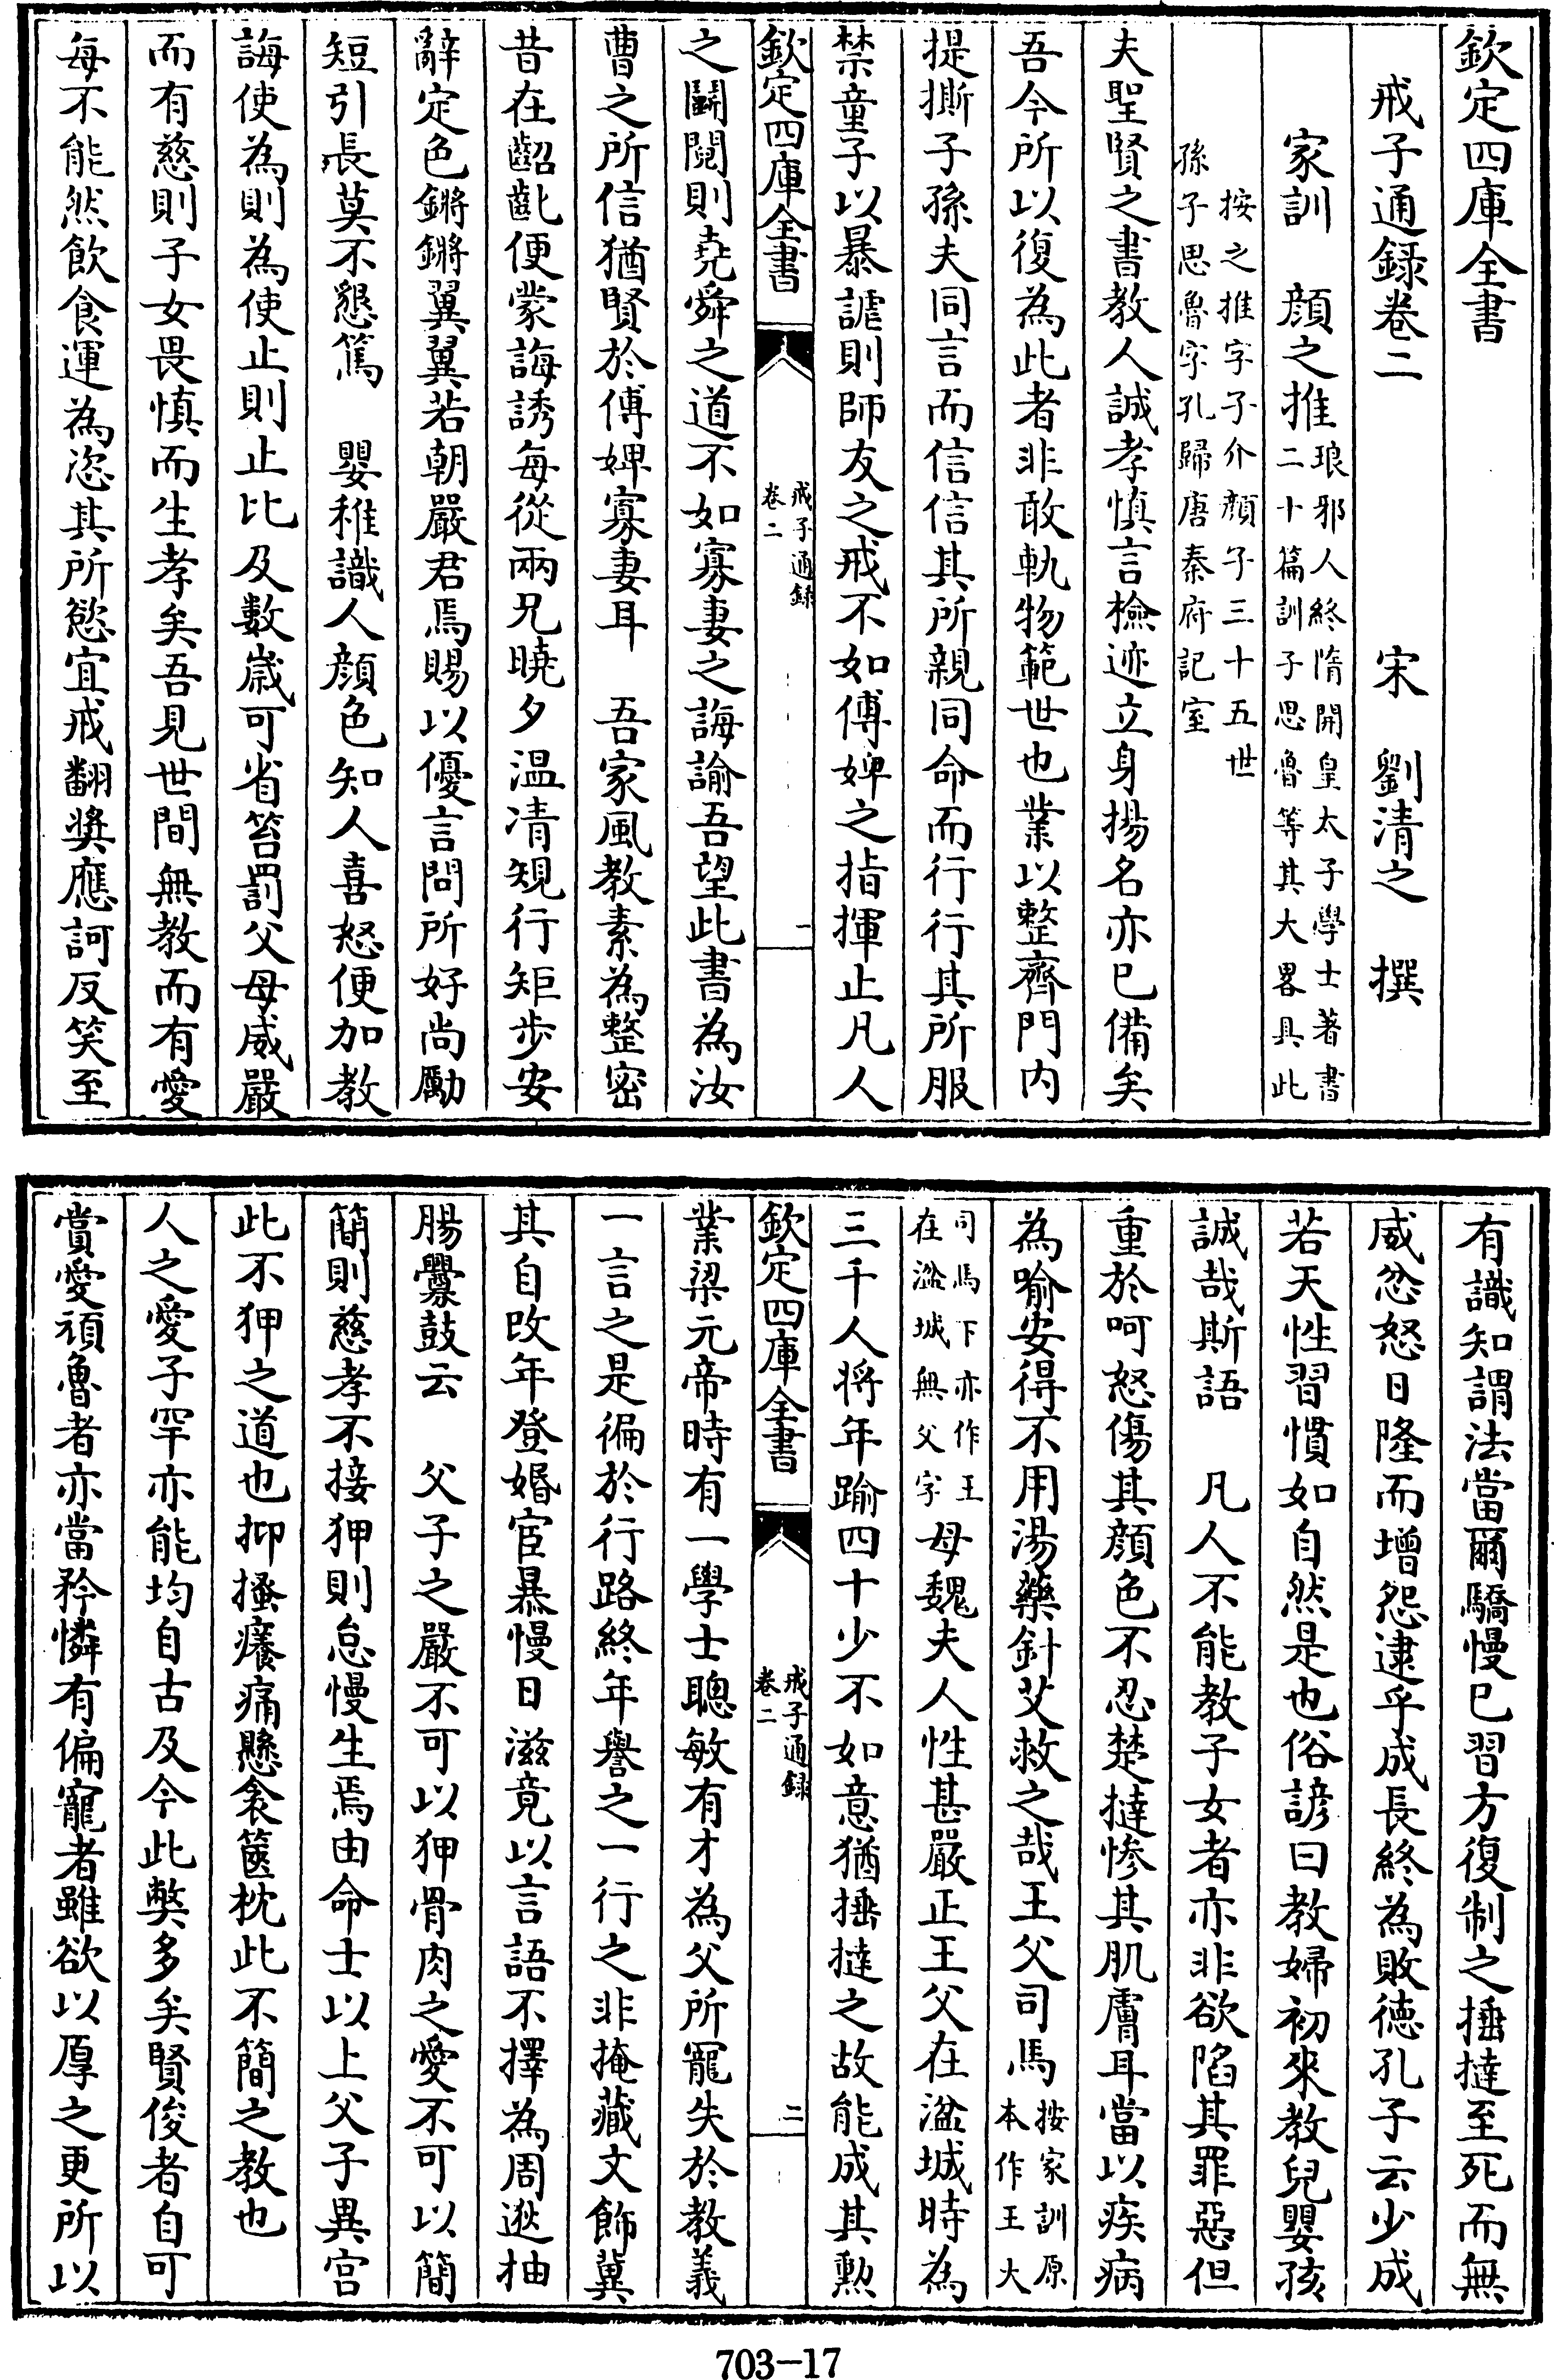 欽定四庫全書
戒子通録卷二
宋　劉清之　撰
家訓　顔之推琅邪人終隋開皇太子學士著書二十篇訓子思魯等其大畧具此
按之推字子介顔子三十五世孫子思魯字孔歸唐秦府記室
夫聖賢之書教人誠孝慎言檢迹立身揚名亦已備矣
吾今所以復為此者非敢軌物範世也業以整齊門内
提撕子孫夫同言而信信其所親同命而行行其所服
禁童子以暴謔則師友之戒不如傅婢之指揮止凡人
欽定四庫全書
戒子通録
卷二
一
之鬭鬩則堯舜之道不如寡妻之誨諭吾望此書為汝
曹之所信猶賢於傅婢寡妻耳　吾家風教素為整密
昔在齠齔便蒙誨誘每從兩兄曉夕温凊規行矩步安
辭定色鏘鏘翼翼若朝嚴君焉賜以優言問所好尚勵
短引長莫不懇篤　嬰稚識人顔色知人喜怒便加教
誨使為則為使止則止比及數歲可省笞罰父母威嚴
而有慈則子女畏慎而生孝矣吾見世間無教而有愛
每不能然飲食運為恣其所慾宜戒翻奬應訶反笑至
有識知謂法當爾驕慢已習方復制之捶撻至死而無
威忿怒日隆而增怨逮乎成長終為敗徳孔子云少成
若天性習慣如自然是也俗諺曰教婦初來教兒嬰孩
誠哉斯語　凡人不能教子女者亦非欲陷其罪惡但
重於呵怒傷其顔色不忍楚撻慘其肌膚耳當以疾病
為喻安得不用湯藥針艾救之哉王父司馬按家訓原本作王大
司馬下亦作王在湓城無父字母魏夫人性甚嚴正王父在湓城時為
三千人將年踰四十少不如意猶捶撻之故能成其勲
欽定四庫全書
戒子通録
卷二
二
業梁元帝時有一學士聰敏有才為父所寵失於教義
一言之是徧於行路終年譽之一行之非掩藏文飾冀
其自改年登婚宦暴慢日滋竟以言語不擇為周逖抽
腸釁鼓云　父子之嚴不可以狎骨肉之愛不可以簡
簡則慈孝不接狎則怠慢生焉由命士以上父子異宫
此不狎之道也抑搔癢痛懸衾篋枕此不簡之教也
人之愛子罕亦能均自古及今此弊多矣賢俊者自可
賞愛頑魯者亦當矜憐有偏寵者雖欲以厚之更所以
703-17